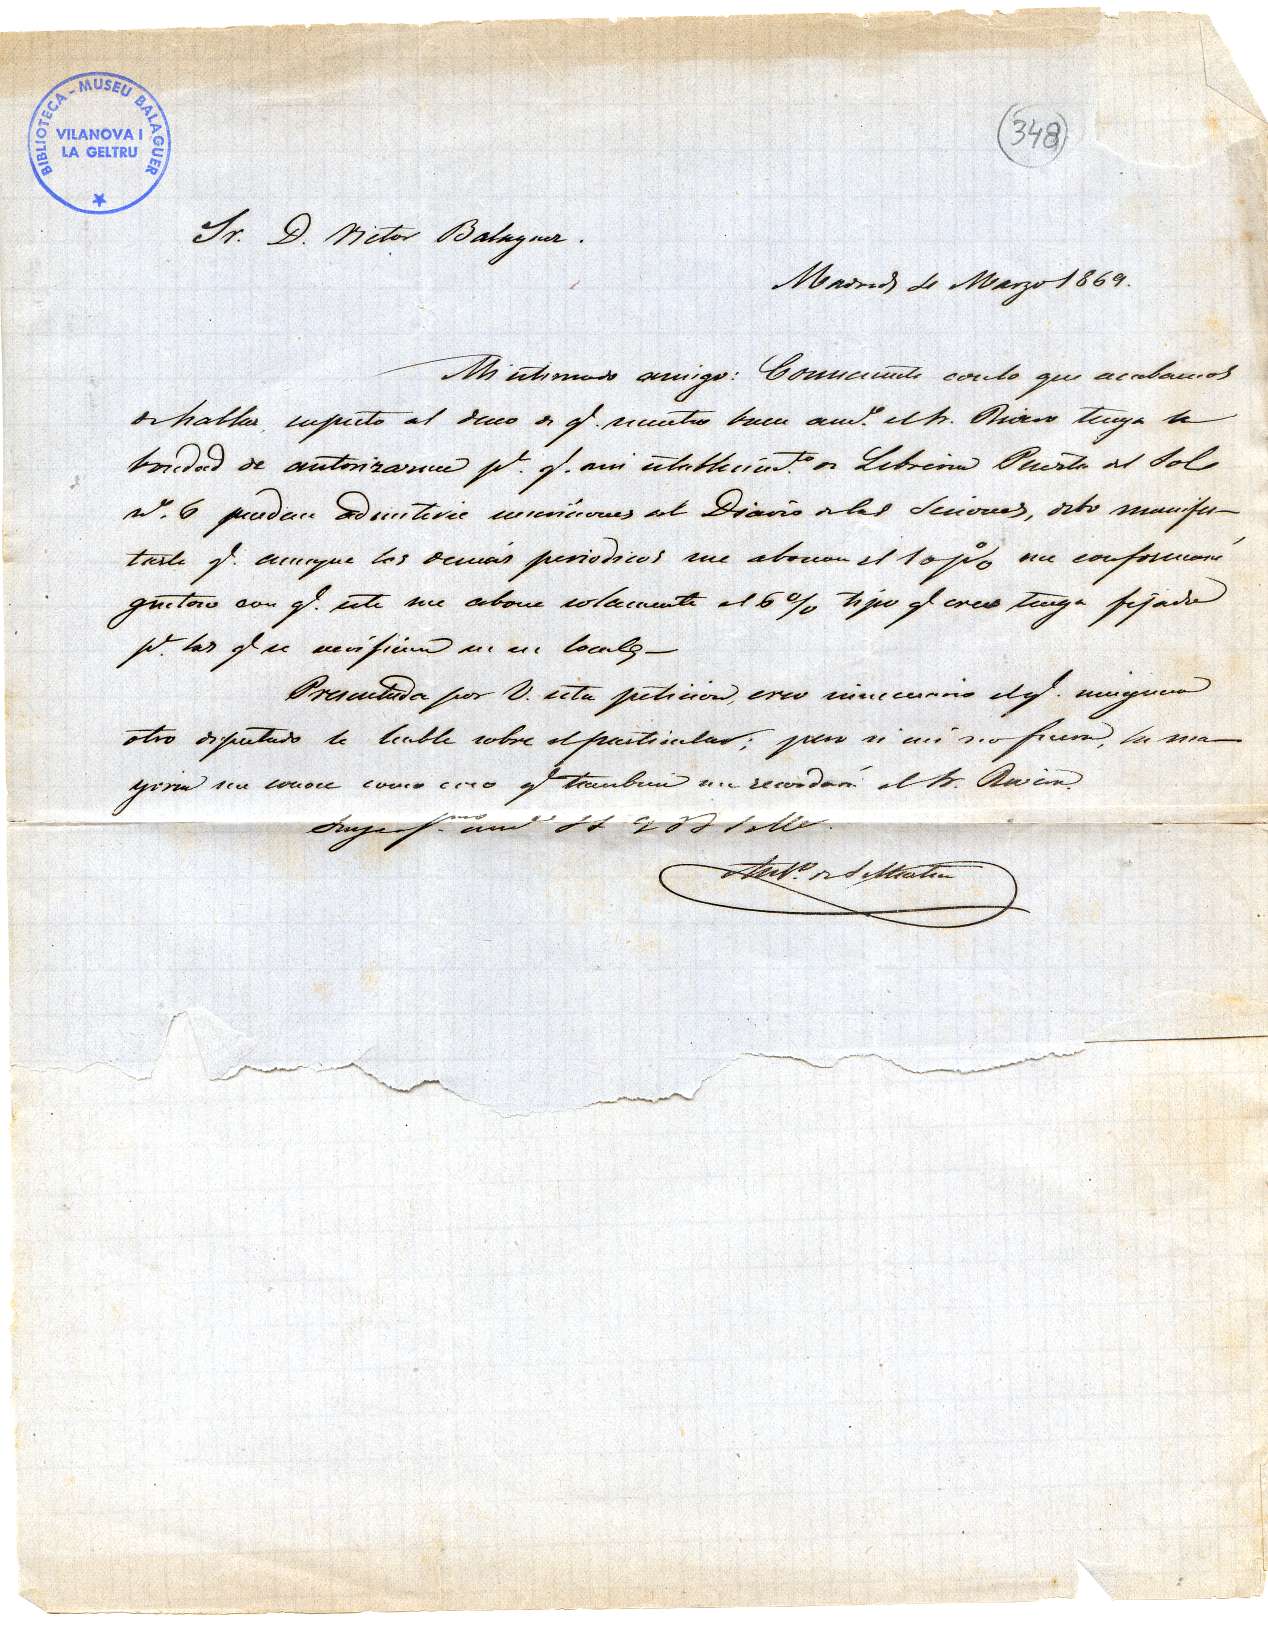 BIBLIOTECA - MUSEU BALAGUER
VILANOVA I
LA GELTRU
348
Sr. D. Victor Balaguer.
Madrid de Marzo 1869.
Mi estimado amigo: Consecuente con lo que acabamos
de hablar, respecto al deseo de q.e nuestro buen am.o el Sr. tenga la
bondad de autorizarme p.a q.e mi establecim.to de Librería Puerta del Sol
n.o 6 puedan admitirse suscriciones al Diario de las Sesiones, debo manifes-
tarle q.e aunque los demás periodicos me abonan el 10 p% me conformaré
gustoso con q.e este me abone solamente el 6 % tipo q.e creo tenga fijado
p.a las q.e se verifican en su local.—
Presentada por V. esta peticion, creo innecesario el q.e ningun
otro diputado le hable sobre el particular; pero si asi no fuera, la ma-
yoria me conoce como creo q.e tambien me recordará el Sr.
Suyo am.o S. S. Q. B. S. M.
Ant.o de S. Martin